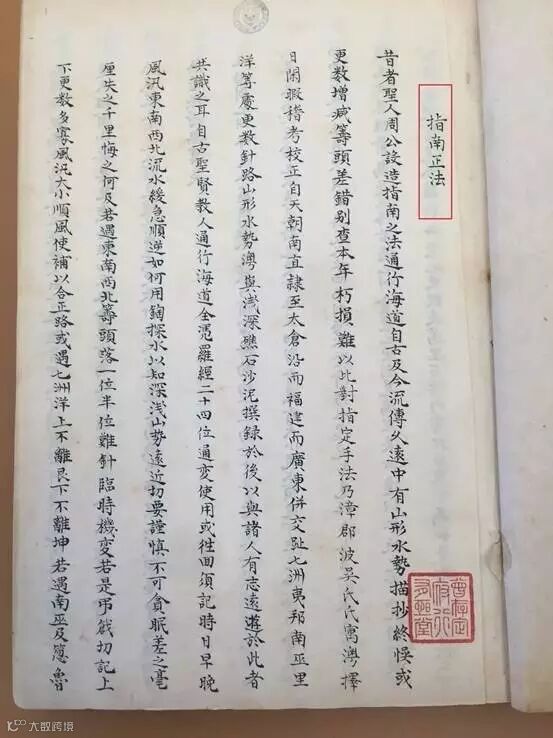 指南正法
昔者聖人周公設造指南之法通行海道自古及今流傳久遠中有山形水勢描抄終悞或
更数增减筹頭差錯别查本年朽損難以比對指定手法乃漳郡波吳氏氏寓澚擇
日閑暇稽考校正自天朝南直隷至太倉沿而福建而廣東併交趾七洲夷邦南巫里
洋等處更数針路山形水勢澚與浅深礁石沙泥撰録於後以與諸人有志遠遊於此者
共識之耳自古聖賢教人通行海道全凴羅經二十四位通変使用或徃回須記時日早晚
風汛東南西北流水緩急順逆如何用鉤探水以知深浅山势遠近切要謹慎不可貪眠差之毫
厘失之千里悔之何及若遇東南西北筹頭落一位半位難針臨時機変若是吊戧切記上
下更数多寡風汛大小順風使補以合正路或遇七洲洋上不離艮下不離坤若遇南巫及
大数跨境